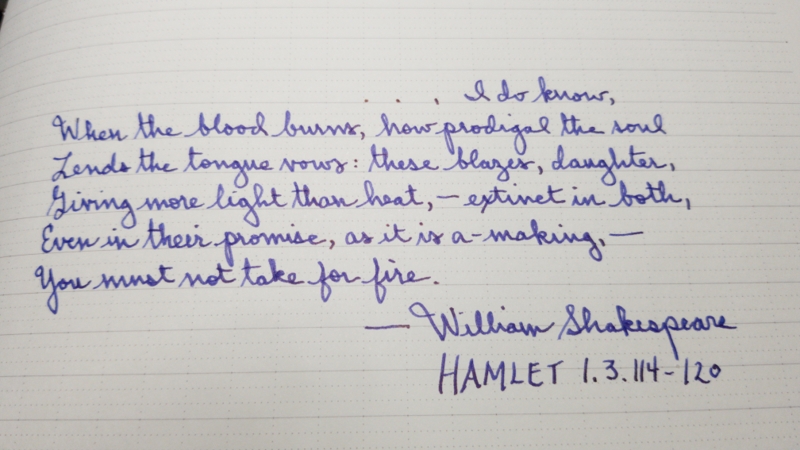 . . . I do know,
When the blood burns, how prodigal the soul
Lends the tongue vows: these blazes, daughter,
Giving more light than heat, — extinct in both,
Even in their promise, as it is a-making, —
You must not take for fire.
— William Shakespeare
HAMLET 1.3.114-120